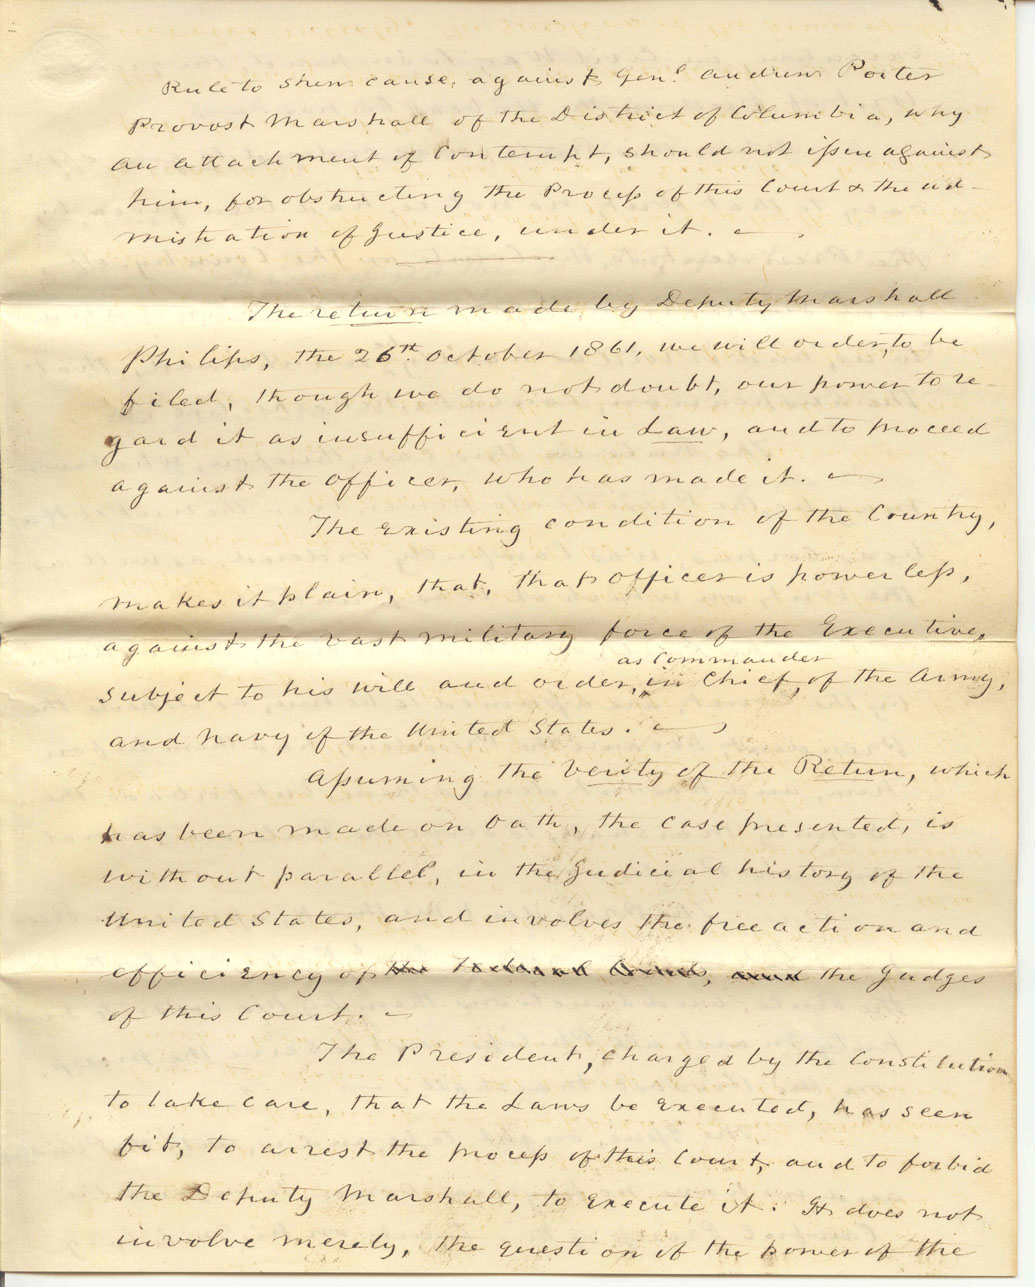 Rule to shew cause, against Genl. Andrew Porter
Provost Marshall of the District of Columbia, why
an attachment of Contempt, should not issue against
him, for obstructing the Process of this Court & the ad-
mistration of Justice, under it.
The return made by Deputy Marshall
Philips, the 26th. October 1861. we will order, to be
filed, though we do not doubt, our power to re-
gard it as insufficient in Law, and to proceed
against the officer, who has made it.
The Existing condition of the Country,
makes it plain, that, that officer is powerless,
against the vast military force of the Executive,
as Commander
subject to his will and order, in Chief, of the Army,
and Navy of the United States.
Assuming the verity of the Return, which
has been made on oath, the case presented, is
without parallel, in the Judicial history of the
United States, and involves the free action and
efficiency of the Judges
of this Court.
The President, charged by the Constitution
to take care, that the Laws be Executed, has seen
fit, to arrest the process of this Court, and to forbid
the Deputy Marshall, to Execute it. It does not
involve merely, the question of the power of the